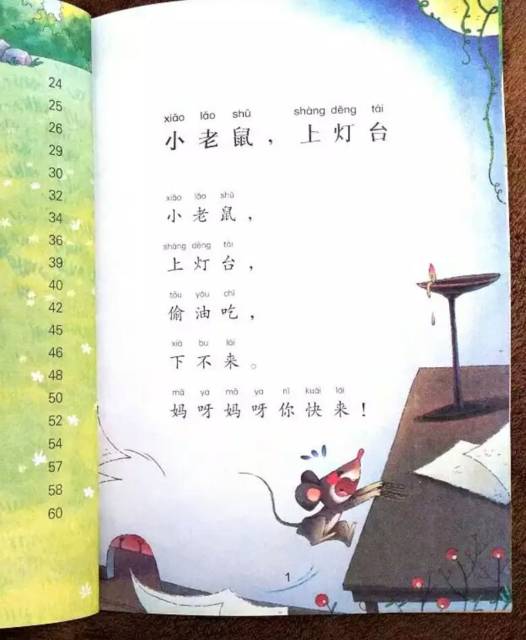 24
25
26
29
30
32
34
36
39
40
42
45
46
48
50
52
54
57
58
60
xiǎo lǎo shǔ shàng dēng tái
小老鼠，上灯台
xiǎo lǎo shǔ
小老鼠，
shàng dēng tái
上灯台，
tōu yóu chī
偷油吃，
xià bu lái
下不来。
mā ya mā ya nǐ kuài lái
妈呀妈呀你快来！
1